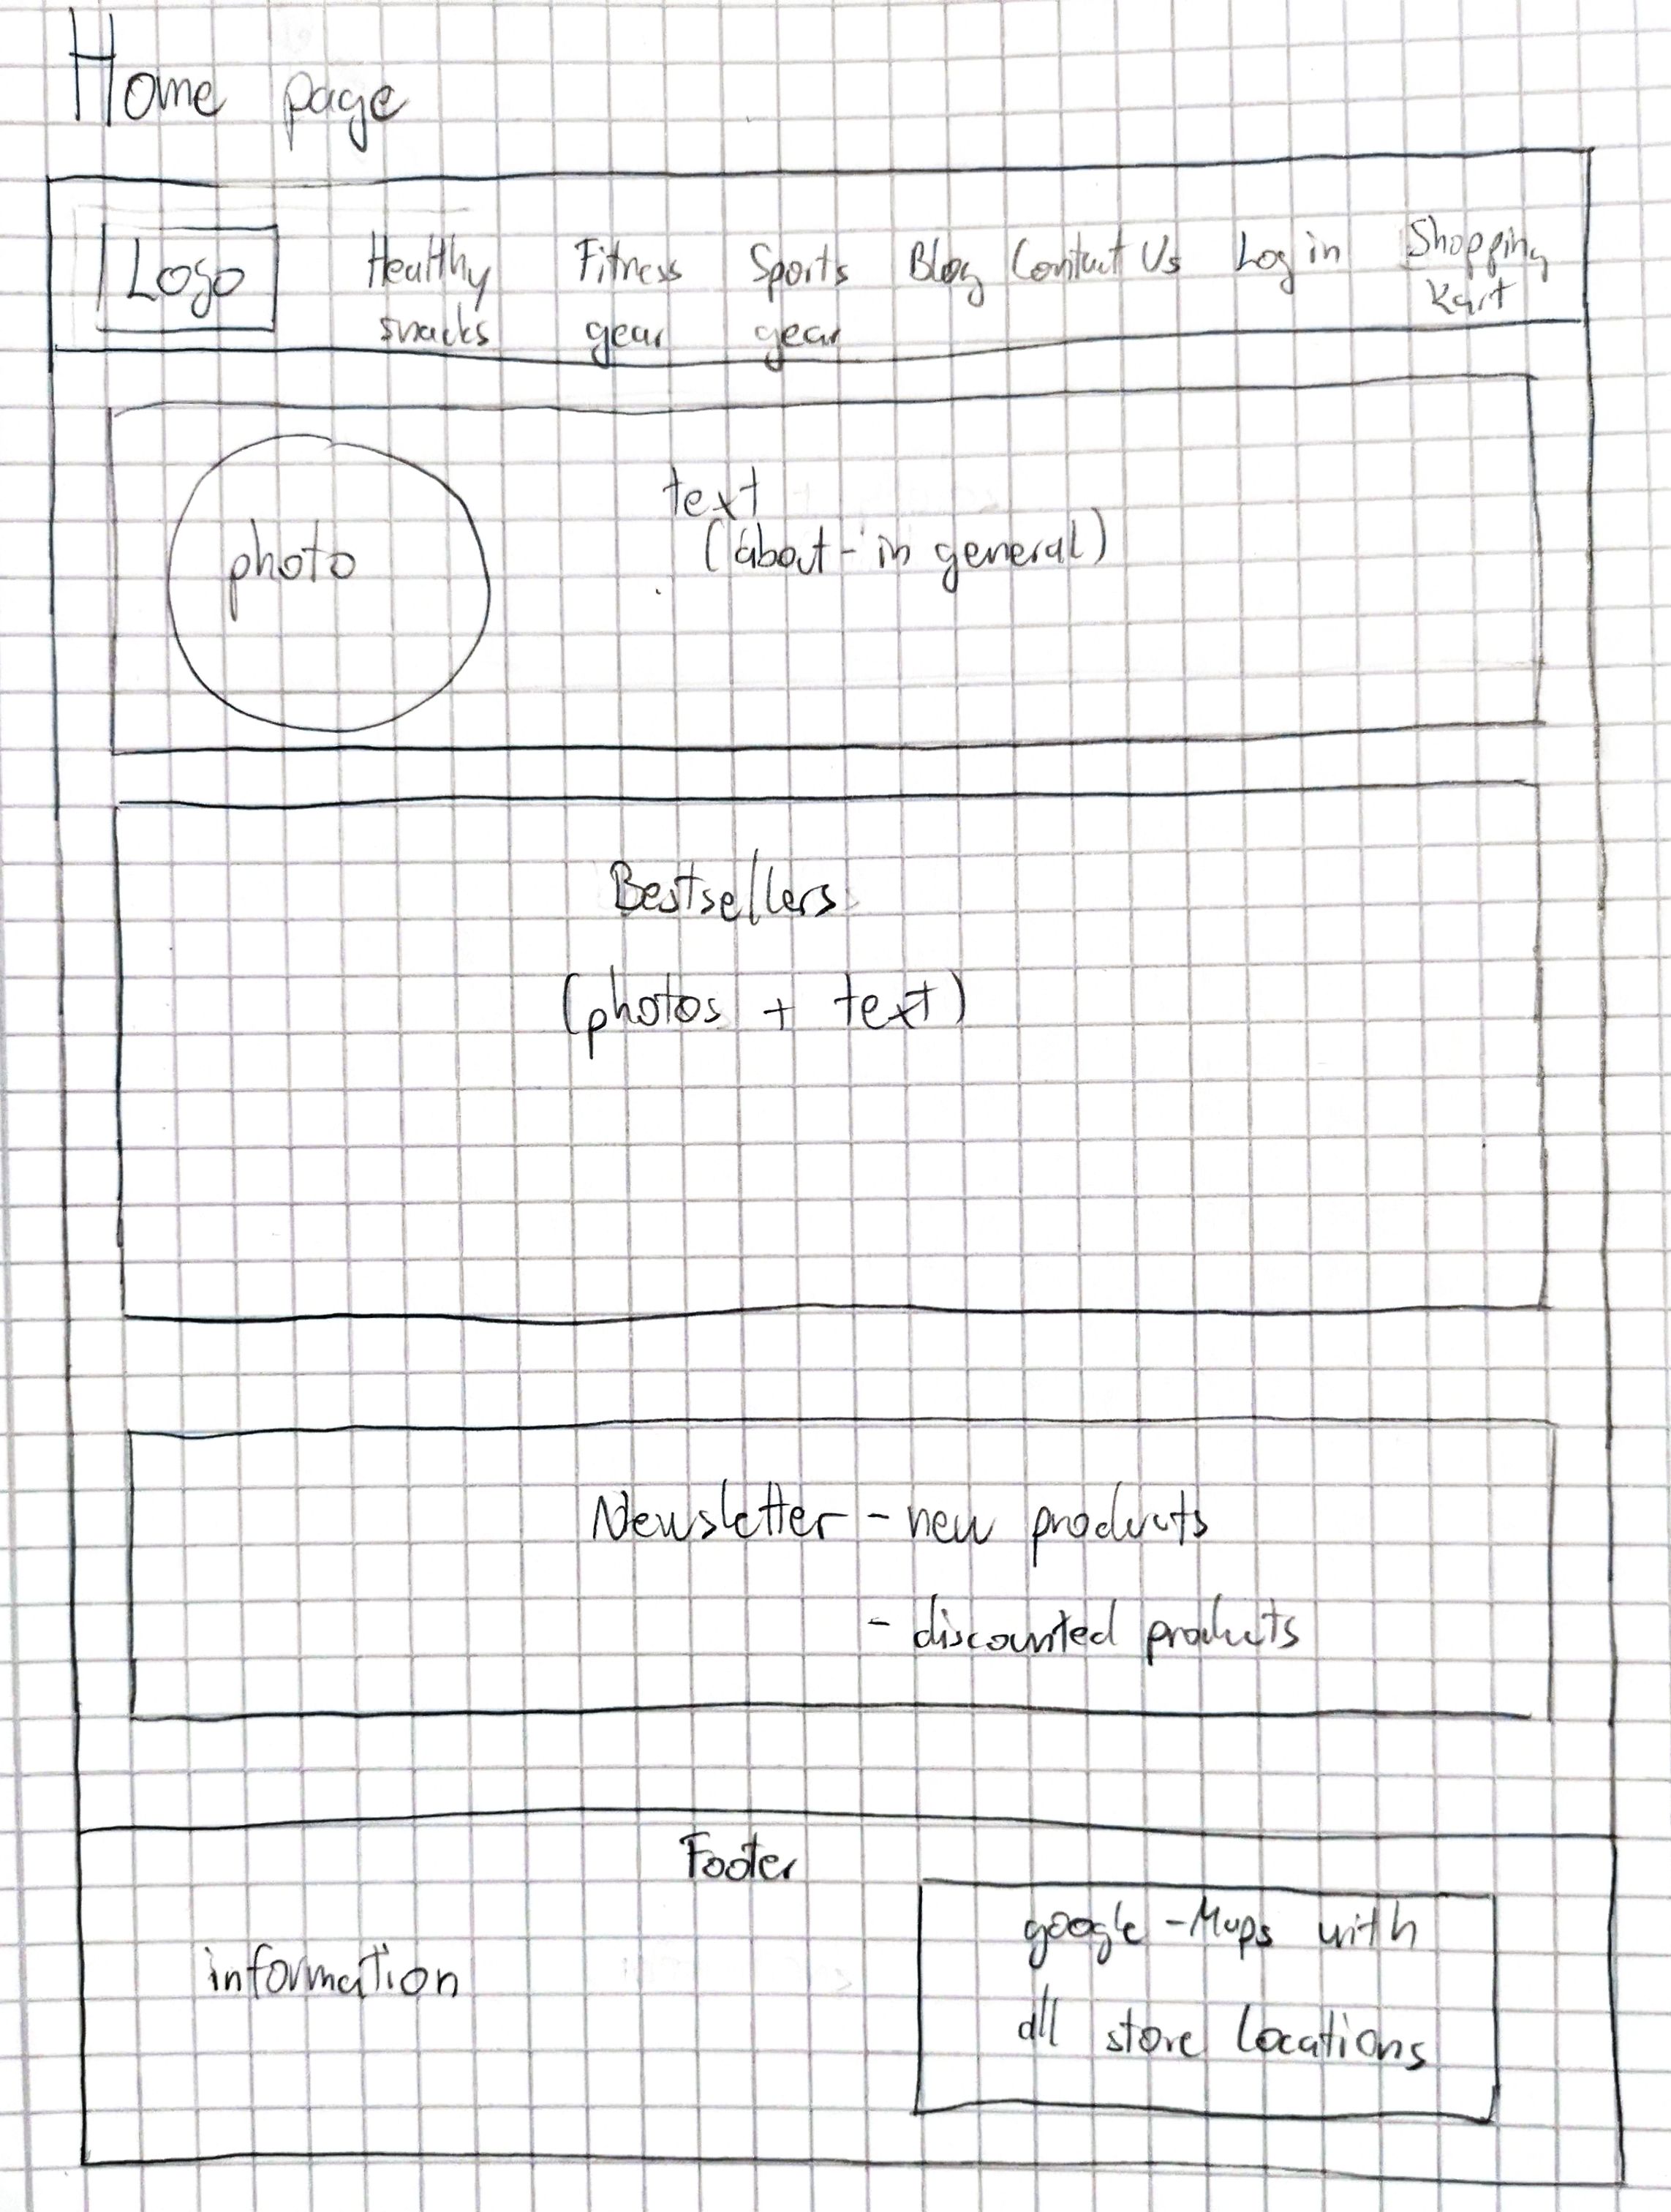 Home page
Logo
Healthy
snacks
Fitness
gear
Sports
gear
Blog
Contact Us
Log in
Shopping
Kart
photo
text
(about - in general)
Bestsellers
(photos + text)
Newsletter - new products
- discounted products
Footer
information
google - Maps with
all store locations